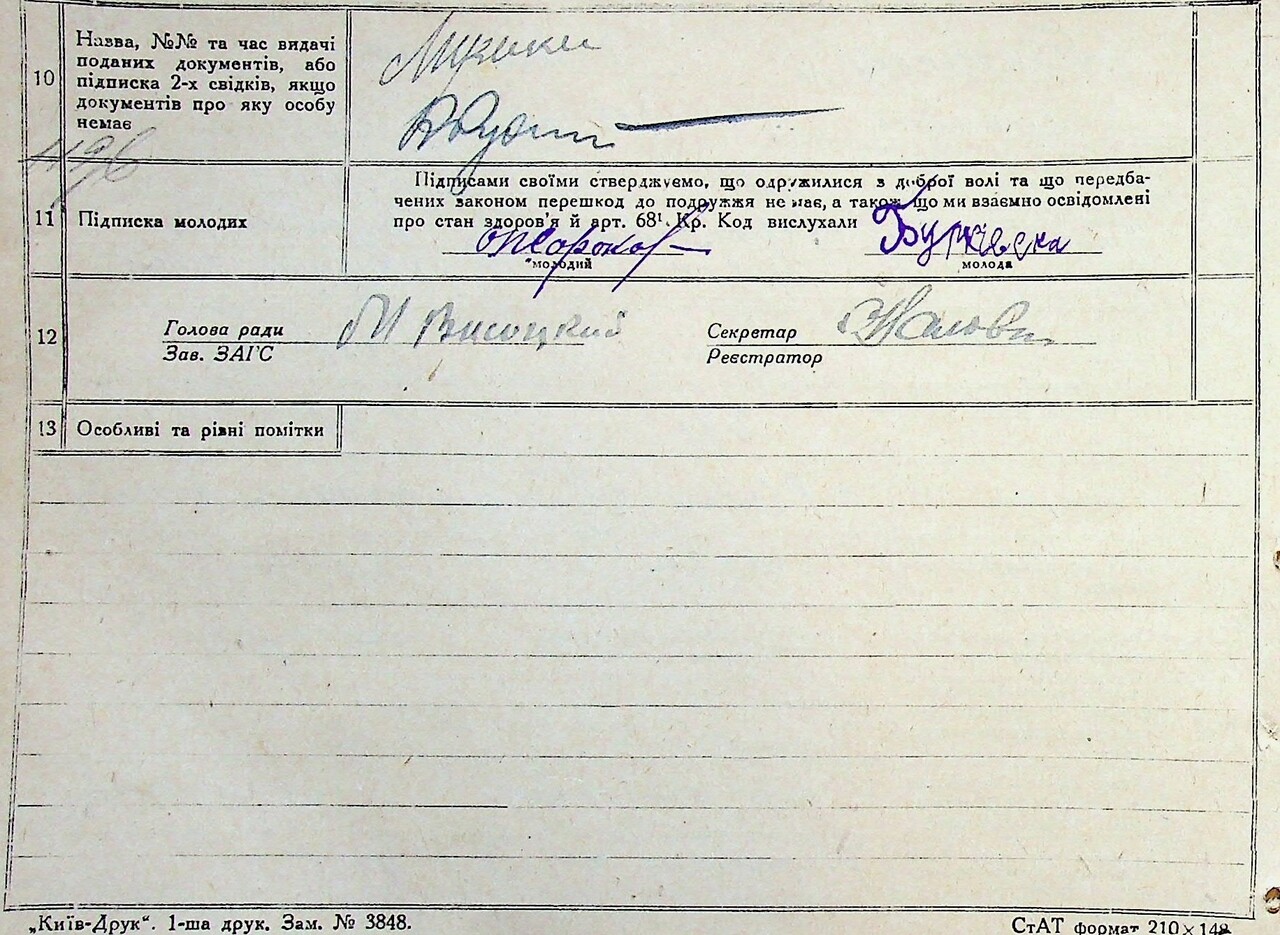 10
Назва, №№ та час видачі
поданих документів, або
підписка 2-х свідків, якщо
документів про яку особу
немає
11
Підписка молодих
Підписами своїми стверджуємо, що одружилися з доброї волі та що передба-
чених законом перешкод до подружжя немає, а також що ми взаємно освідомлені
про стан здоров'я й арт. 68¹ Кр. Код вислухали
молодий
молода
12
Голова ради М Висоцкий Секретар
Зав. ЗАГС Реєстратор
13 Особливі та різні помітки
„Київ-Друк“. 1-ша друк. Зам. № 3848.
СтАТ формат 210×148